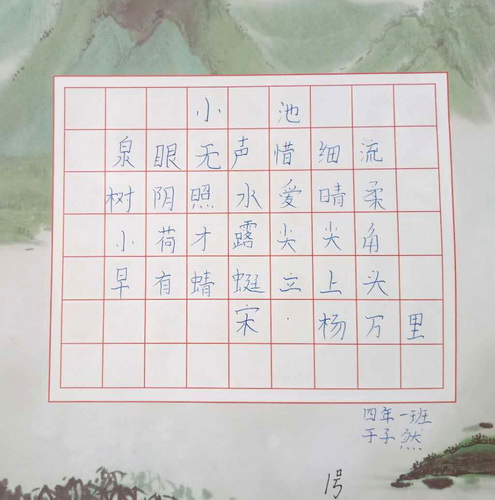 小池
泉眼无声惜细流
树阴照水爱晴柔
小荷才露尖尖角
早有蜻蜓立上头
宋·杨万里
四年一班
于子然
1号